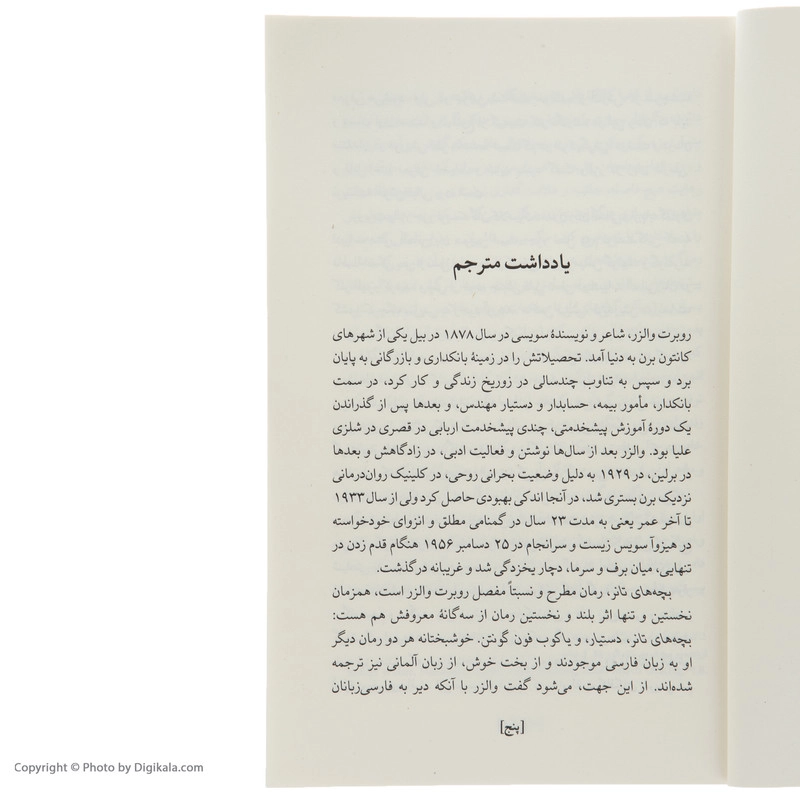 یادداشت مترجم
روبرت والزر، شاعر و نویسندهٔ سویسی در سال ۱۸۷۸ در بیل یکی از شهرهای
کانتون برن به دنیا آمد. تحصیلاتش را در زمینهٔ بانکداری و بازرگانی به پایان
برد و سپس به تناوب چندسالی در زوریخ زندگی و کار کرد، در سمت
بانکدار، مأمور بیمه، حسابدار و دستیار مهندس، و بعدها پس از گذراندن
یک دورهٔ آموزش پیشخدمتی، چندی پیشخدمت اربابی در قصری در شلزی
علیا بود. والزر بعد از سال‌ها نوشتن و فعالیت ادبی، در زادگاهش و بعدها
در برلین، در ۱۹۲۹ به دلیل وضعیت بحرانی روحی، در کلینیک روان‌درمانی
نزدیک برن بستری شد، در آنجا اندکی بهبودی حاصل کرد ولی از سال ۱۹۳۳
تا آخر عمر یعنی به مدت ۲۳ سال در گمنامی مطلق و انزوای خودخواسته
در هیزوآ سویس زیست و سرانجام در ۲۵ دسامبر ۱۹۵۶ هنگام قدم زدن در
تنهایی، میان برف و سرما، دچار یخزدگی شد و غریبانه درگذشت.
بچه‌های تانر، رمان مطرح و نسبتاً مفصل روبرت والزر است، همزمان
نخستین و تنها اثر بلند و نخستین رمان از سه‌گانهٔ معروفش هم هست:
بچه‌های تانر، دستیار، و یاکوب فون گونتن. خوشبختانه هر دو رمان دیگر
او به زبان فارسی موجودند و از بخت خوش، از زبان آلمانی نیز ترجمه
شده‌اند. از این جهت، می‌شود گفت والزر با آنکه دیر به فارسی‌زبانان
[پنج]
Copyright © Photo by Digikala.com